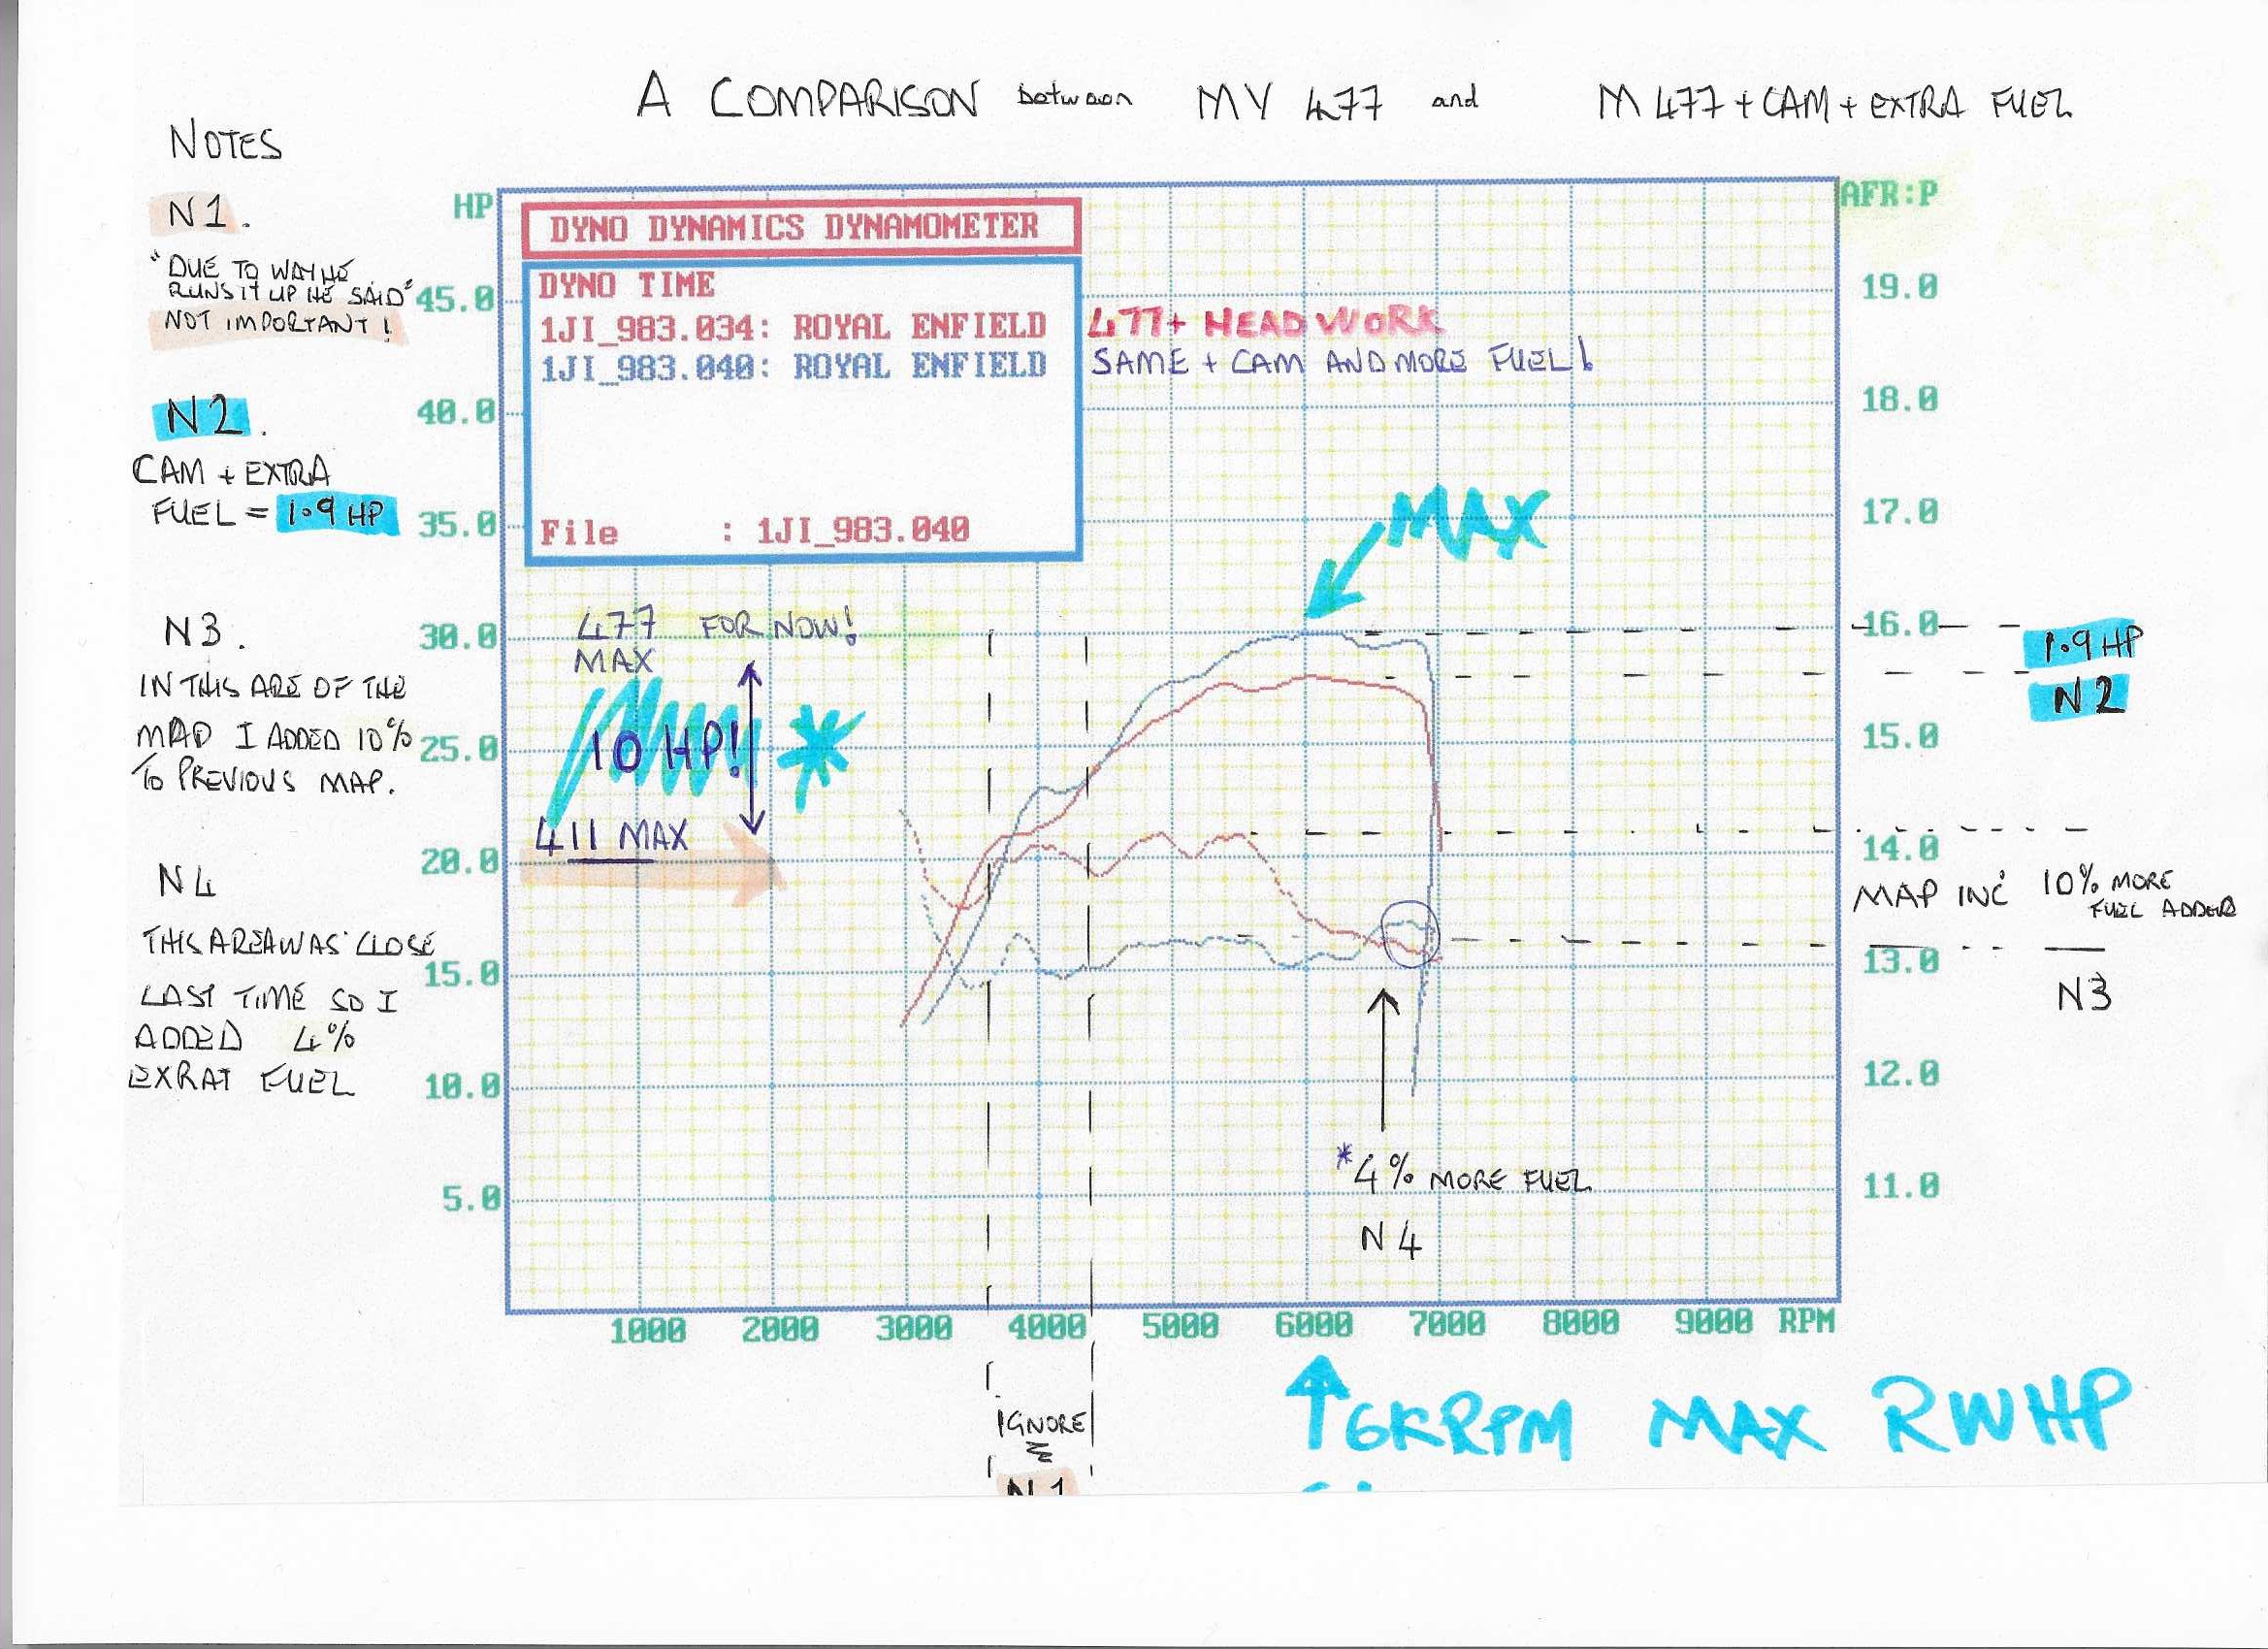 A COMPARISON between MY 477 and M 477 + CAM + EXTRA FUEL
NOTES
N1.
"DUE TO WAY HE
RUNS IT UP HE SAID"
NOT IMPORTANT!
N2.
CAM + EXTRA
FUEL = 1.9 HP
N3.
IN THIS ARE OF THE
MAP I ADDED 10%
TO PREVIOUS MAP.
N4
THIS AREA WAS CLOSE
LAST TIME SO I
ADDED 4%
EXRAT FUEL
HP
45.0
40.0
35.0
30.0
25.0
20.0
15.0
10.0
5.0
DYNO DYNAMICS DYNAMOMETER
DYNO TIME
1JI_983.034: ROYAL ENFIELD
1JI_983.040: ROYAL ENFIELD
File : 1JI_983.040
477 + HEAD WORK
SAME + CAM AND MORE FUEL!
MAX
477 FOR NOW!
MAX
10 HP! *
411 MAX
*4% MORE FUEL
N4
AFR:P
19.0
18.0
17.0
16.0
15.0
14.0
13.0
12.0
11.0
1.9 HP
N2
MAP INC 10% MORE
FUEL ADDED
N3
1000 2000 3000 4000 5000 6000 7000 8000 9000 RPM
IGNORE
N1
6KRPM MAX RWHP